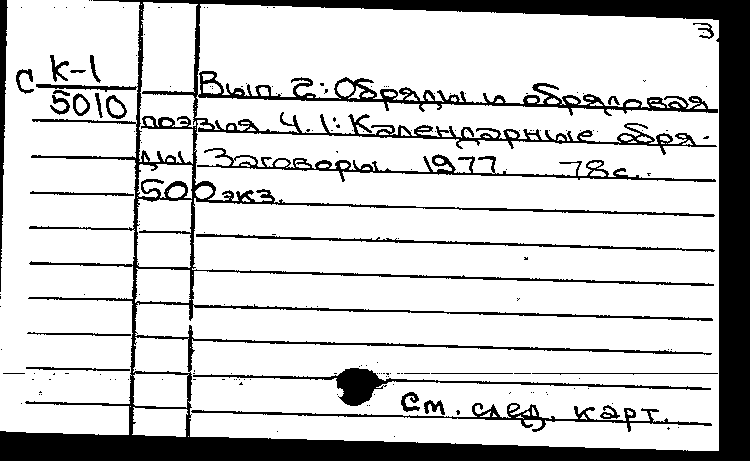 3.
С К-1
5010
Вып. 2: Обряды и обрядовая
поэзия. Ч. 1: Календарные обря-
ды. Заговоры. 1977. 78с.
500 экз.
См. след. карт.